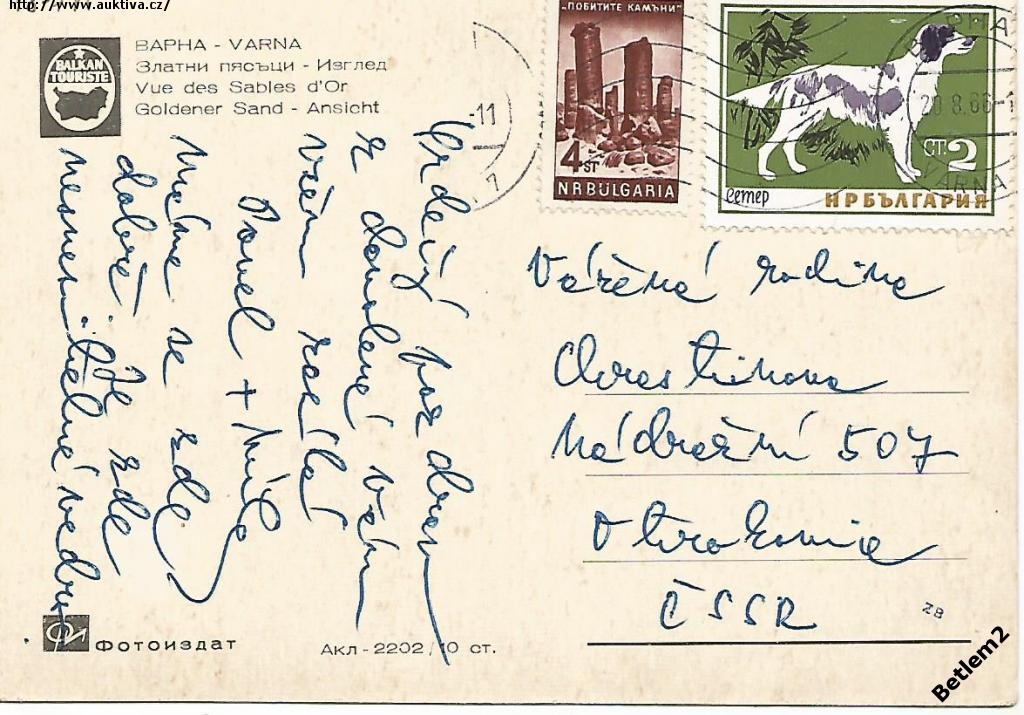 http://www.auktiva.cz/
BALKAN
TOURISTE
ВАРНА - VARNA
Златни пясъци - Изглед
Vue des Sables d'Or
Goldener Sand - Ansicht
"ПОБИТИТЕ КАМЪНИ"
4 ST
NR BULGARIA
сетер
СТ. 2
НР БЪЛГАРИЯ
-11
20.8.66-1
VARNA
Srdečný pozdrav
z dovolené všem
Vám zasílá
Pavel +
Máme se zde
dobře. Je zde
nesnesitelné vedro.
Vážená rodina
Chrastinova
Nádražní 507
Otrokovice
ČSSR
ZB
Фотоиздат
Акл-2202/10 ст.
Betlem2